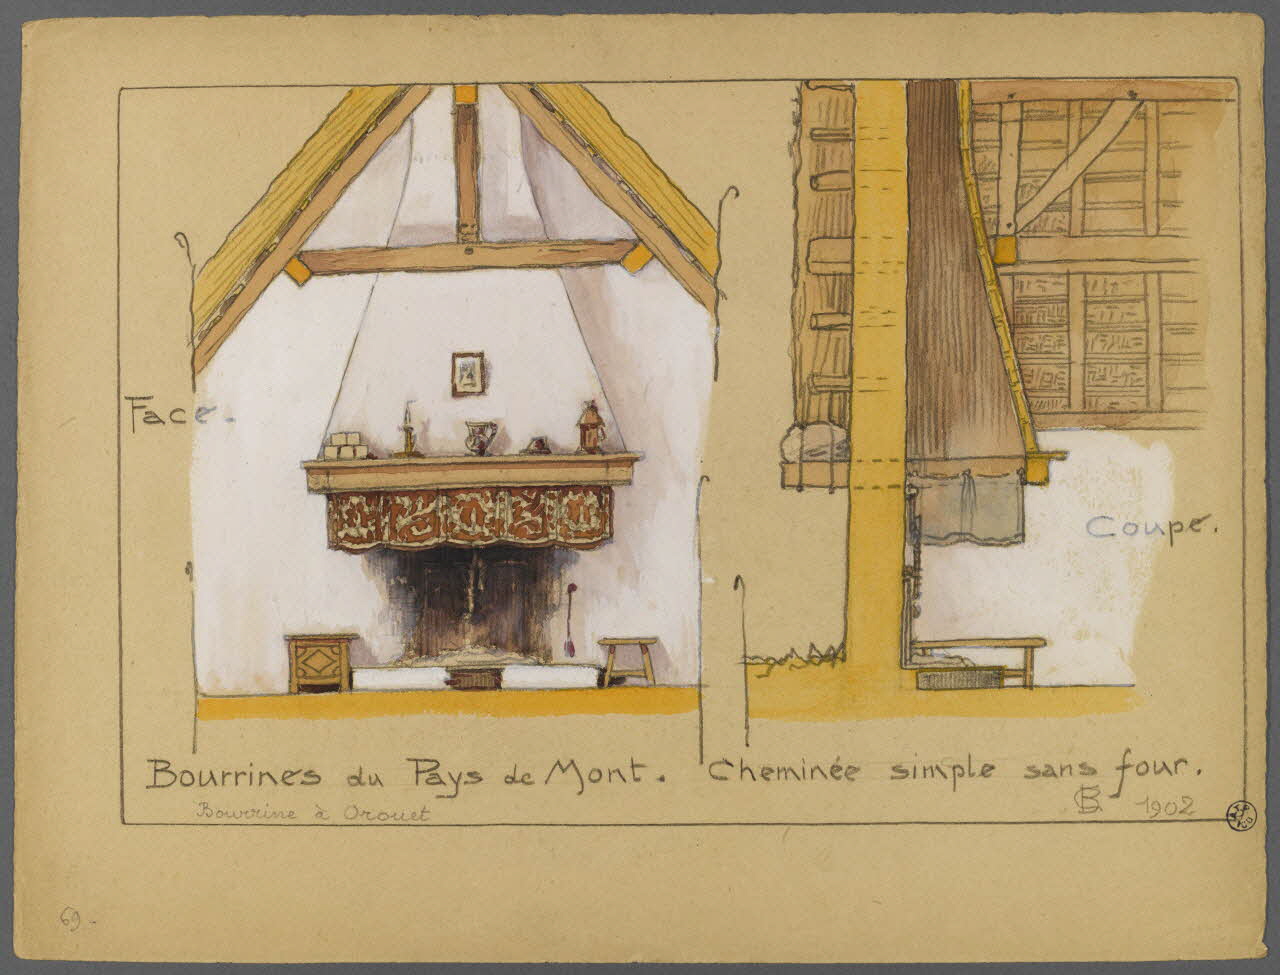 Face.
Coupe.
Bourrines du Pays de Mont. Cheminée simple sans four.
Bourrine à Orouet
1902
69-